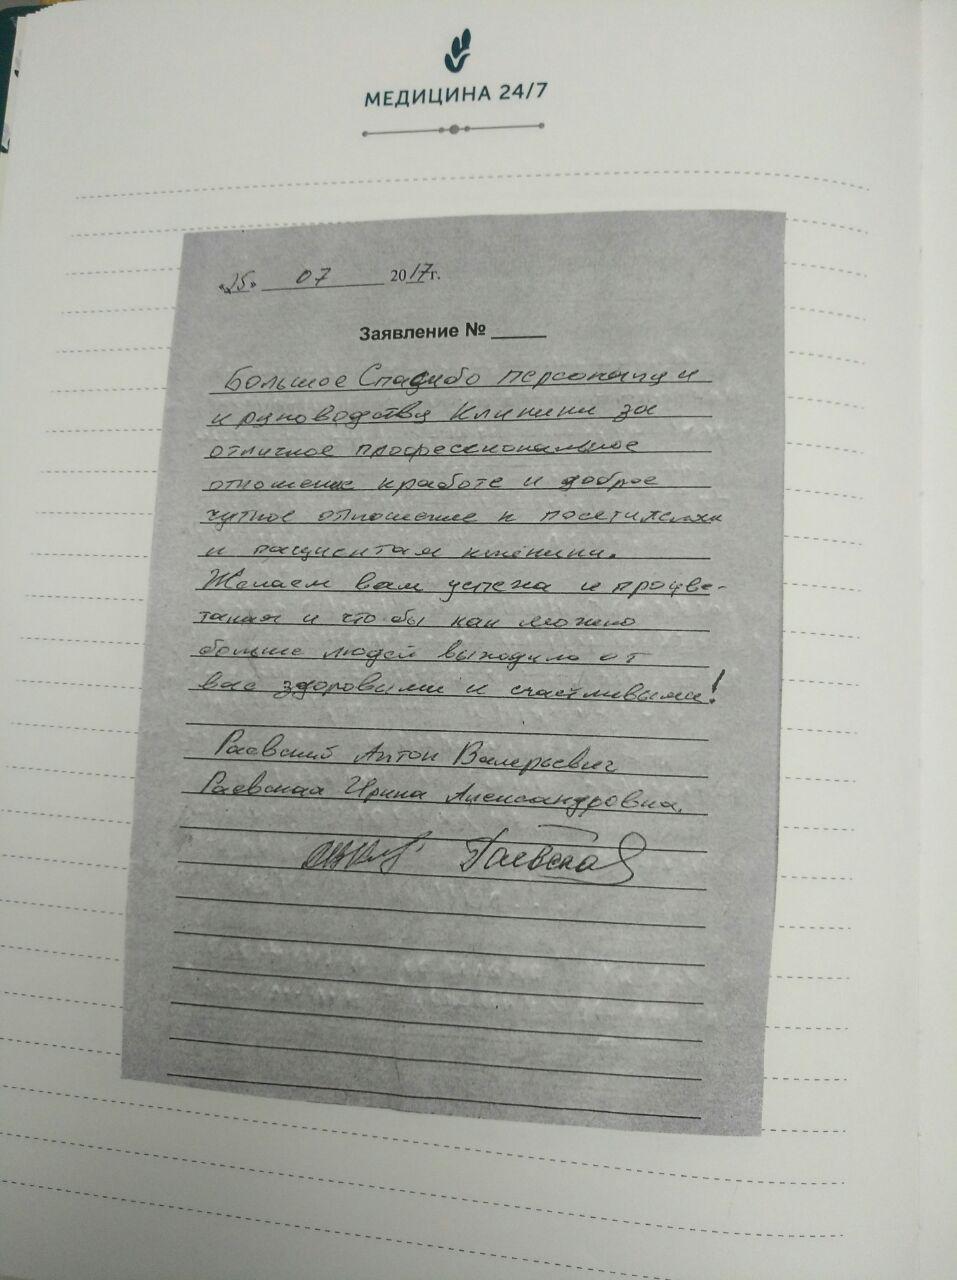 МЕДИЦИНА 24/7
«25» 07 2017г.
Заявление № ____
Большое Спасибо персоналу и
и руководству Клиники за
отличное профессиональное
отношение к работе и доброе
чуткое отношение к посетителям
и пациентам клиники.
Желаем вам успеха и процве-
тания и что бы как можно
больше людей выходило от
вас здоровыми и счастливыми!
Раевский Антон Валерьевич
Раевская Ирина Александровна.
Раевская